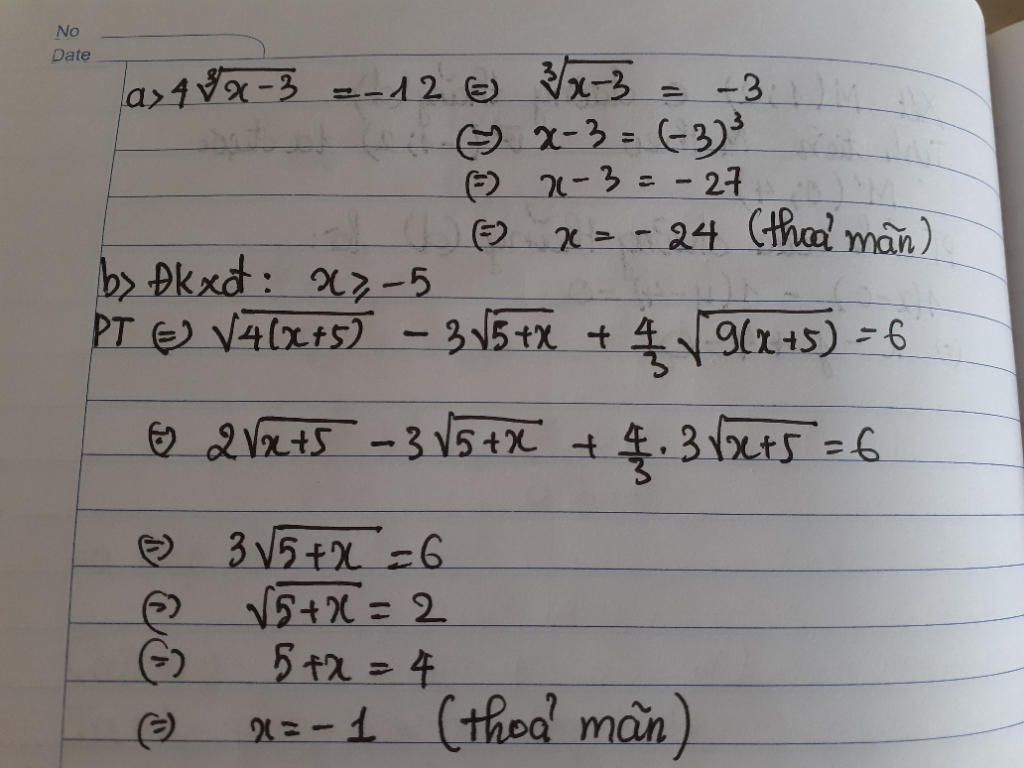 No
Date
a> 4∛(x-3) = -12 (=) ∛(x-3) = -3
(=) x-3 = (-3)³
(=) x-3 = -27
(=) x = -24 (thoả mãn)
b> Đkxđ: x ⩾ -5
PT (=) √(4(x+5)) - 3√(5+x) + 4/3 √(9(x+5)) = 6
(=) 2√(x+5) - 3√(5+x) + 4/3 . 3√(x+5) = 6
(=) 3√(5+x) = 6
(=) √(5+x) = 2
(=) 5+x = 4
(=) x = -1 (thoả mãn)